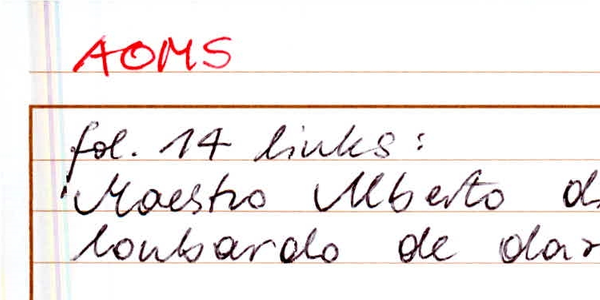 AOMS
fol. 14 links:
Maestro Alberto
lombardo de